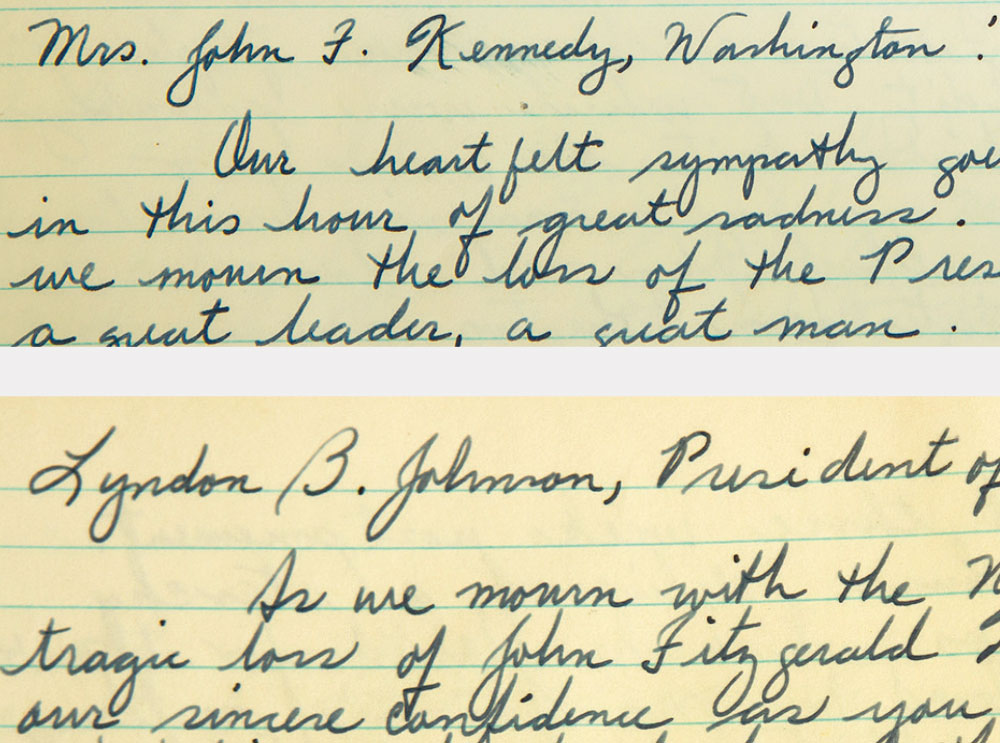 Mrs. John F. Kennedy, Washington :
Our heartfelt sympathy goe
in this hour of great sadness.
we mourn the loss of the Pres
a great leader, a great man.
Lyndon B. Johnson, President of
As we mourn with the N
tragic loss of John Fitzgerald
our sincere confidence as you